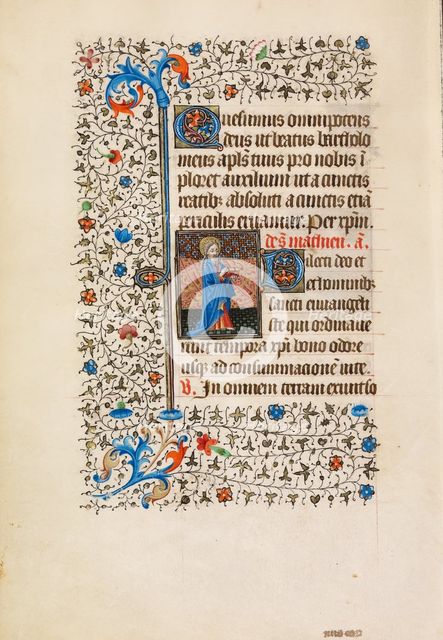 Quesumus omnipotens
deus ut beatus bartholo
meus apls tuus pro nobis i
ploret auxilium ut a cunctis
reatibꝫ absoluti a cunctis etiā
periculis eruamur. Per xp̄m.
De s. matheu. a.
Dilecti deo et
et hominibꝫ
sancti euuangeli
ste qui ordinaue
runt tempora xp̄i bono odore
usqꝫ ad consummacionē uite.
V. In omnem terram exiuit so